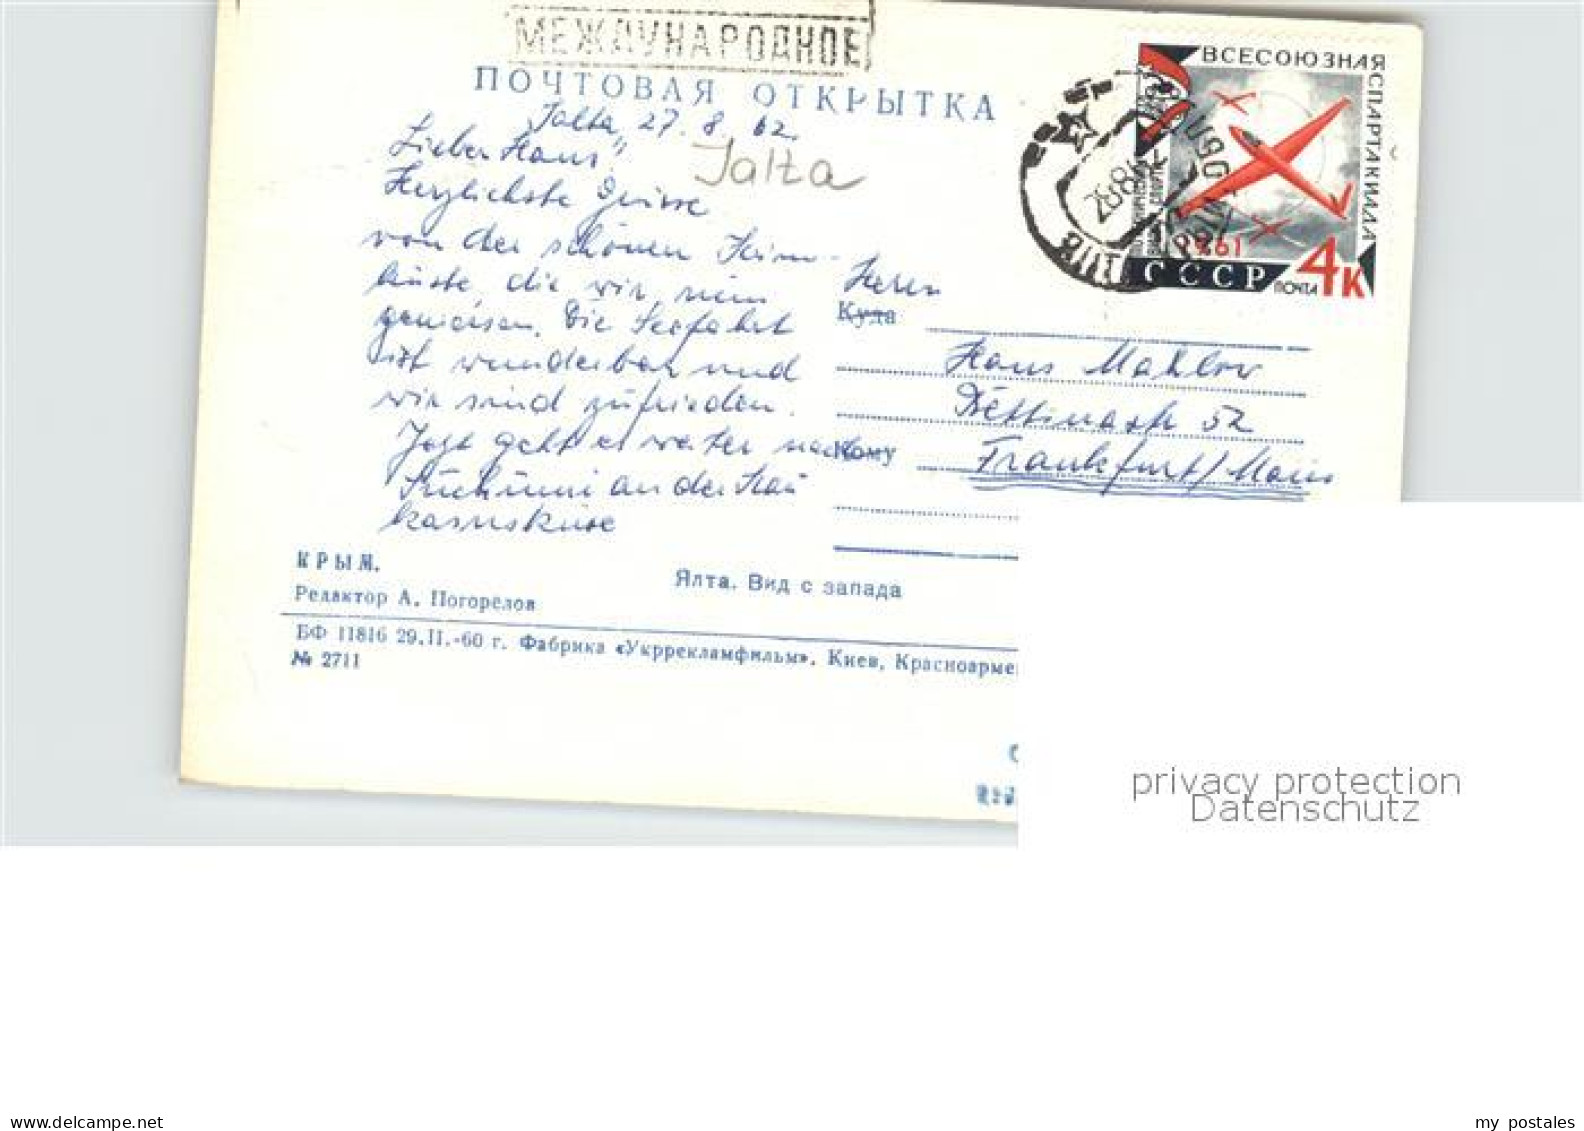 МЕЖДУНАРОДНОЕ
ПОЧТОВАЯ ОТКРЫТКА
Jalta, 27. 8. 62.
Lieber Hans!
Jalta
Herzlichste Grüsse
von der schönen Krim-
küste, die wir nun
geniessen. Die Seefahrt
ist wunderbar und
wir sind zufrieden.
Jetzt geht es weiter nach
Suchumi an der Kau
kasusküste
ВСЕСОЮЗНАЯ
СПАРТАКИАДА
1961
СССР
ПОЧТА 4К
ЯЛТА
Herrn
Куда
Hans Mahlow
Bettinastr 52
Кому
Frankfurt/Main
КРЫМ.
Ялта. Вид с запада
Редактор А. Погорелов
БФ 11816 29.II.-60 г. Фабрика «Укррекламфильм». Киев, Красноарме
№ 2711
privacy protection
Datenschutz
https://www.ansichtskartenversand.com/ak
my postales